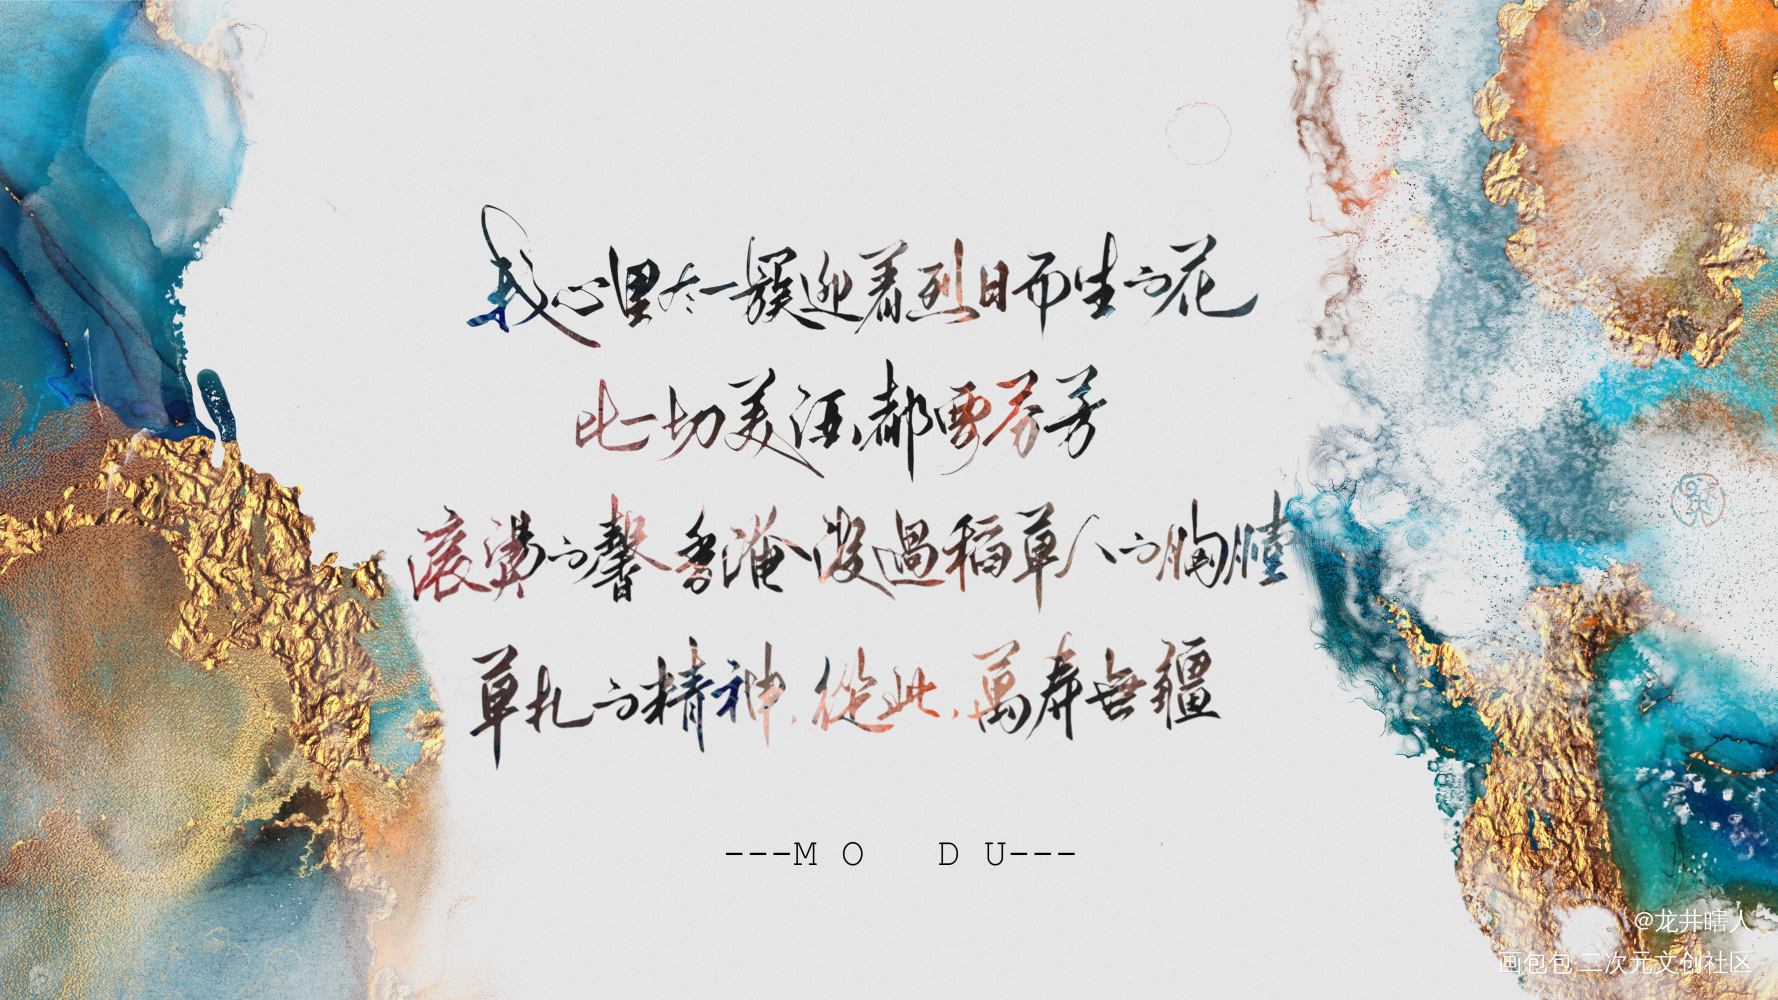 我心里有一簇迎着烈日而生的花
比一切美酒,都要芬芳
滾燙的馨香淹沒過稻草人的胸膛
草扎的精神,從此,萬壽無疆
---MO DU---
@龙井瞎人
画包包·二次元文创社区